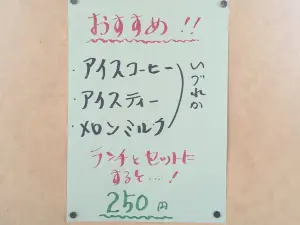 おすすめ!!
・アイスコーヒー
・アイスティー
・メロンミルク
いづれか
ランチとセットに
すると…!
250円